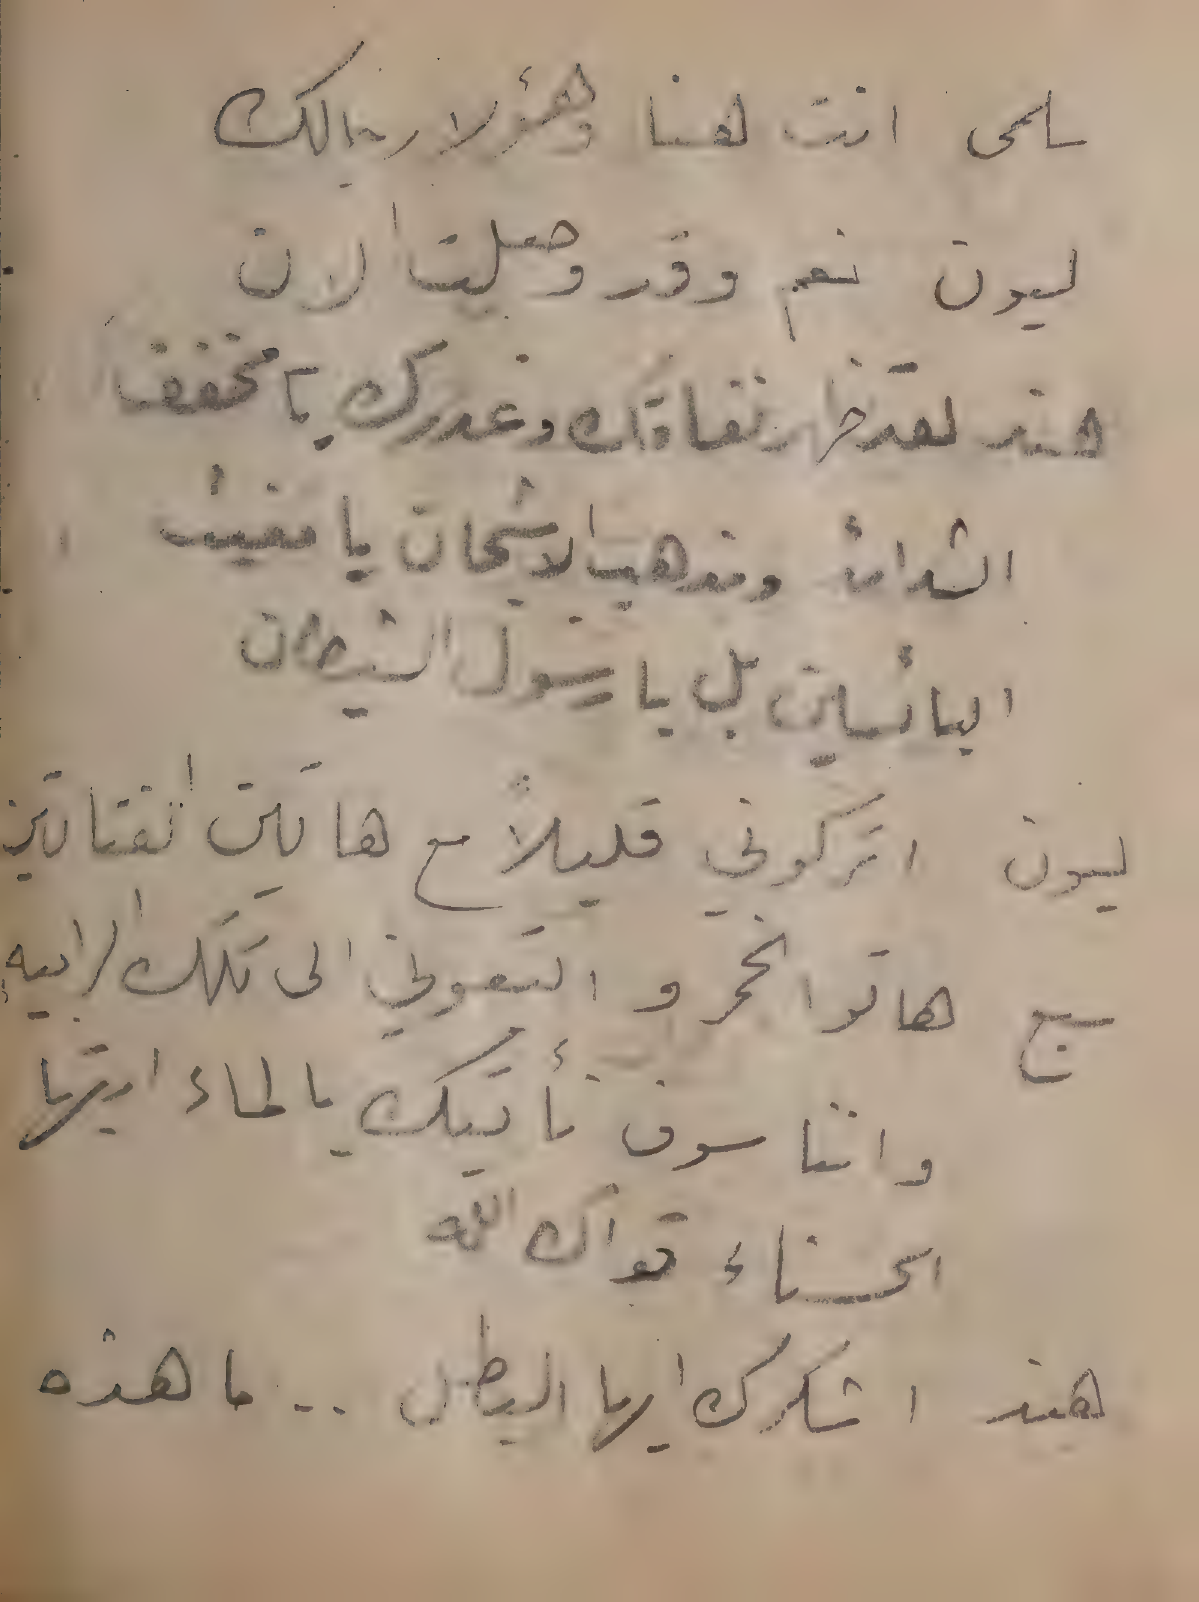 سلمى انت هنا وهؤلا رجالك
ليون نعم وقد وصلت الان
هند لقد ظهر نفاقك وغدرك يا مخفف
الشدائد ومذهب الاشجان يا مغيث
البائسين بل يا رسول الشيطان
ليون اتركوني قليلاً مع هاتين الفتاتين
سبع هاتوا الخمر و اتبعوني الى تلك الرابيه
واننا سوف نأتيك بالماء ايتها
الحسناء قواك الله
هند اشكرك ايها البطل .. ما هذه